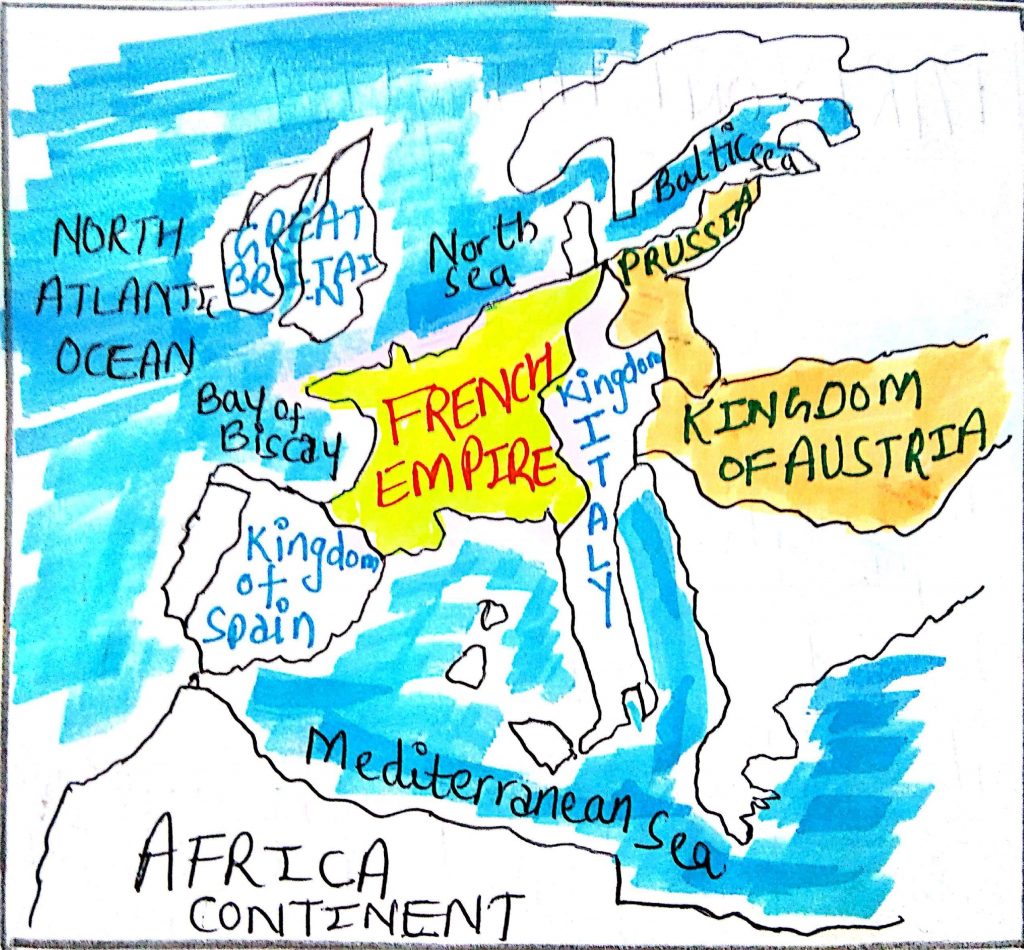 NORTH
ATLANTIC
OCEAN
GREAT
BRITAI
N
North
sea
Baltic
sea
PRUSSIA
Bay of
Biscay
FRENCH
EMPIRE
Kingdom
ITALY
KINGDOM
OF AUSTRIA
Kingdom
of
Spain
Mediterranean Sea
AFRICA
CONTINENT